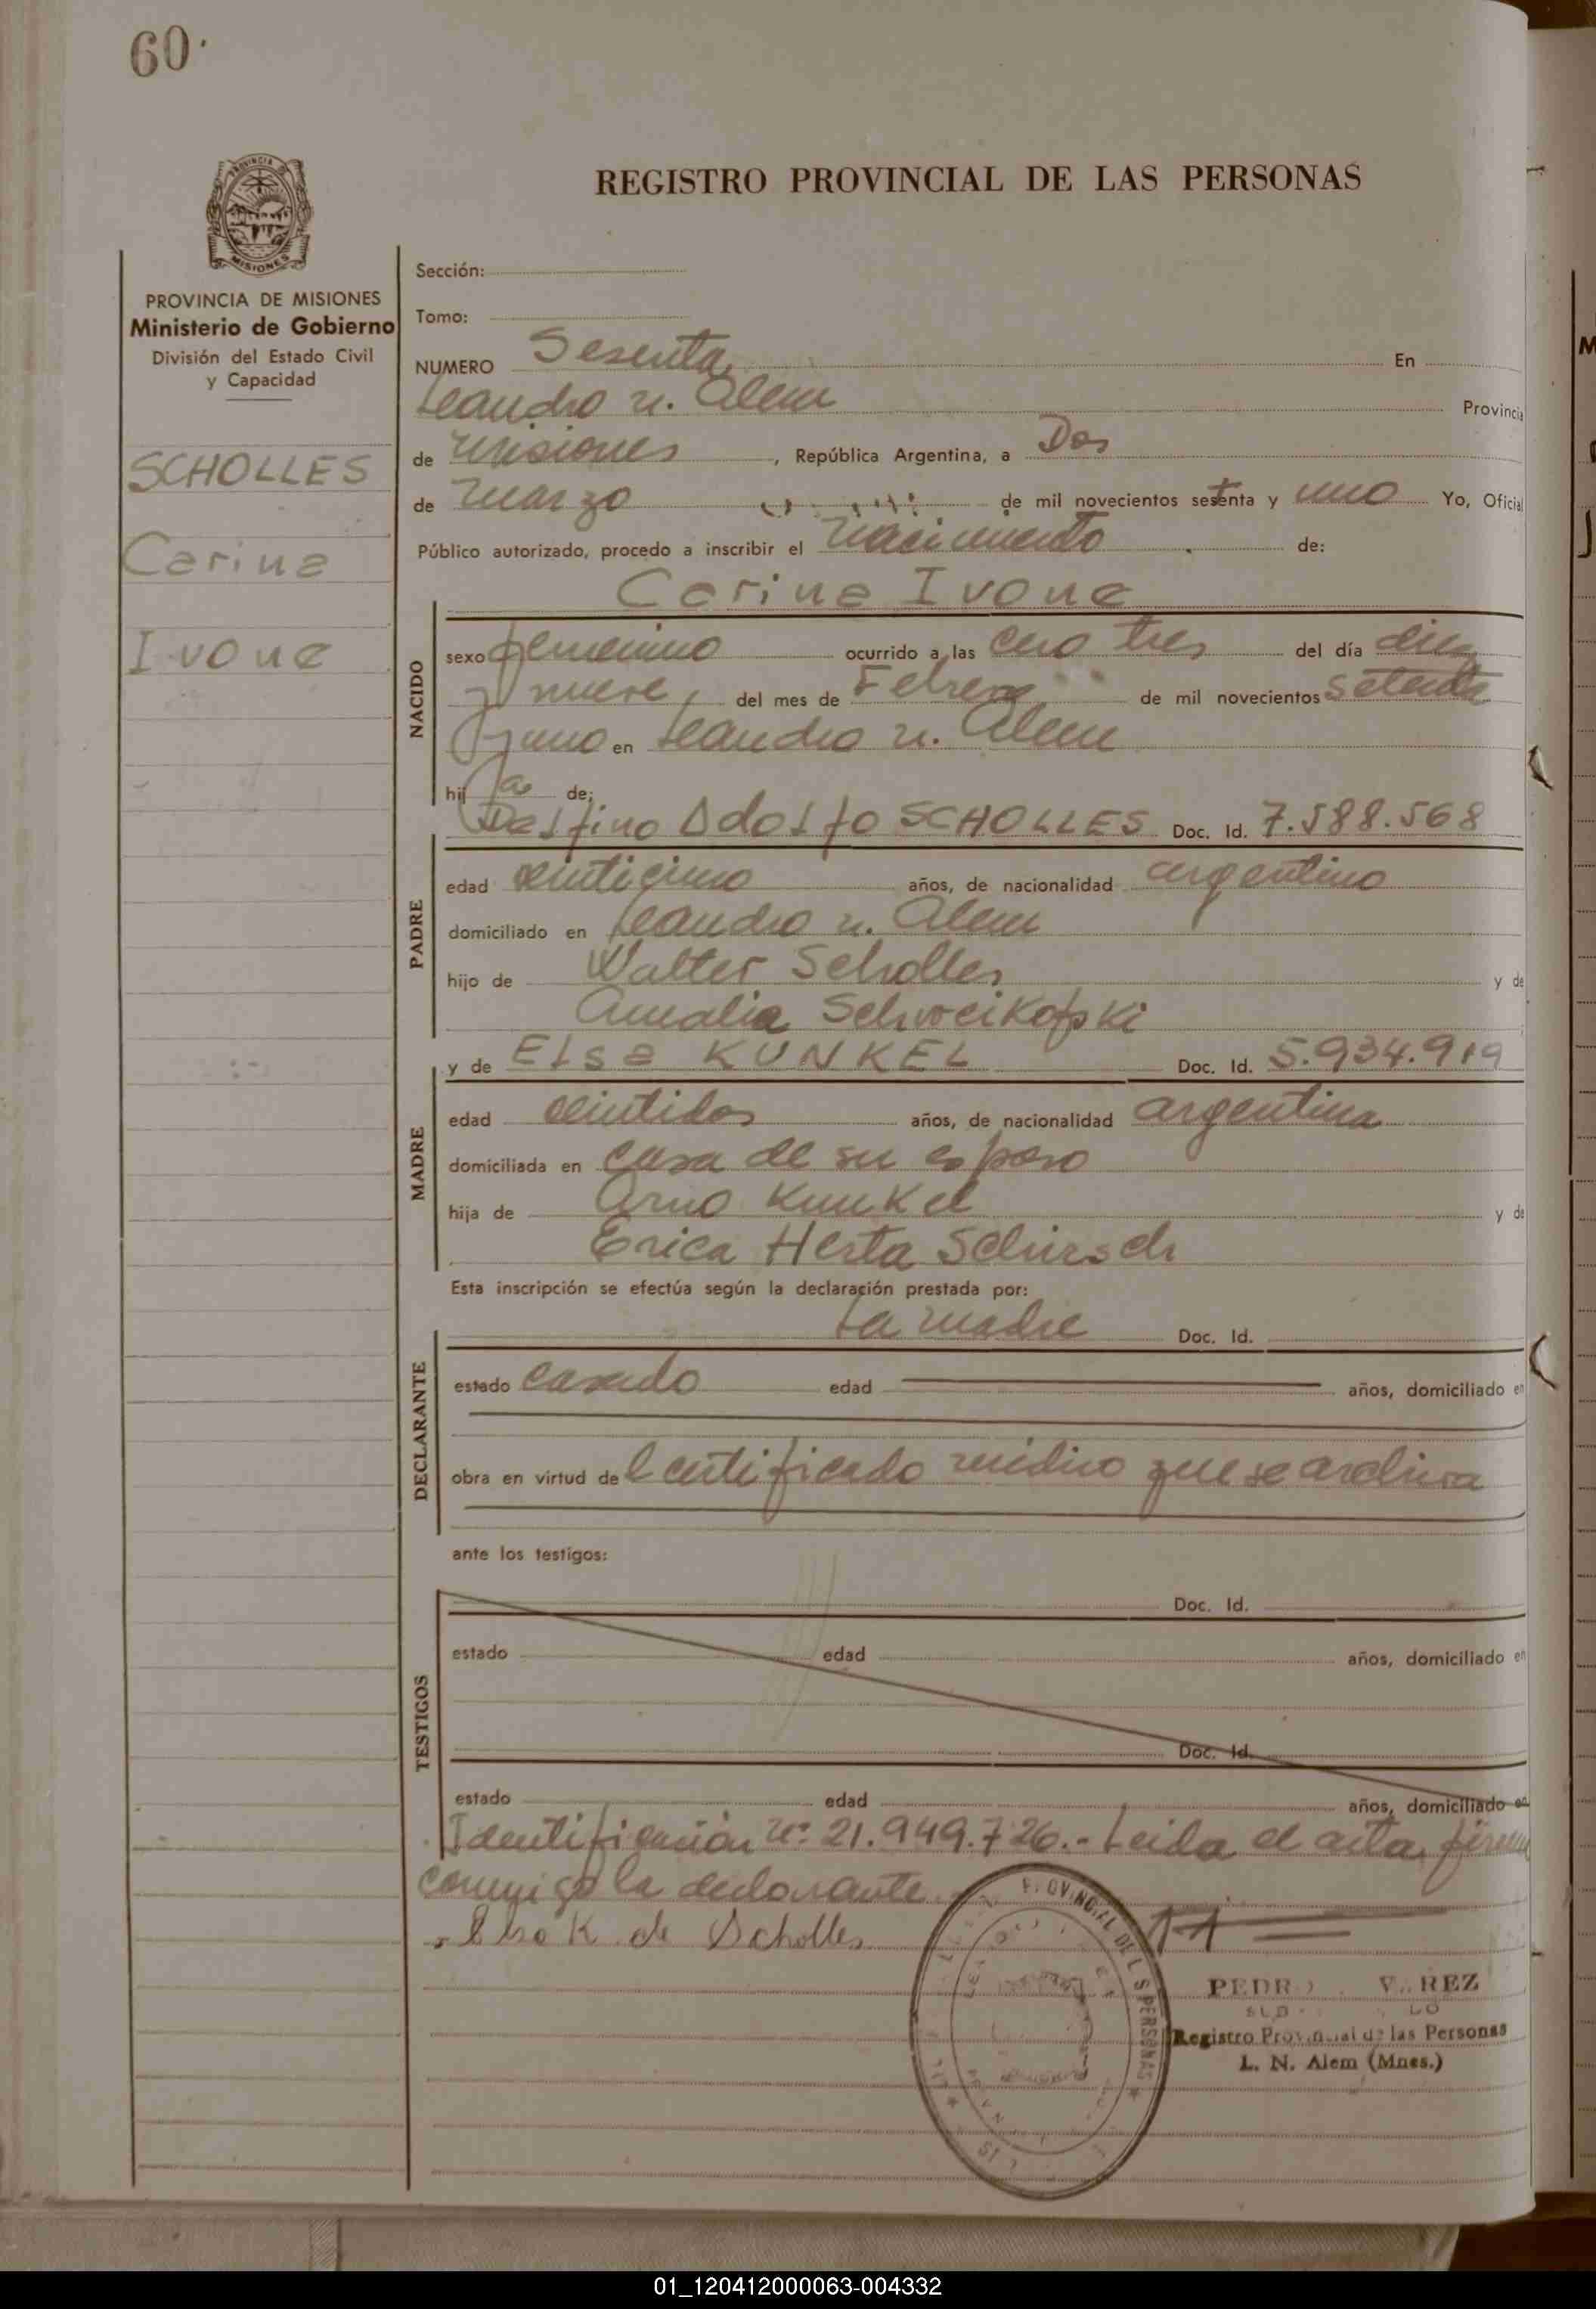 60.
PROVINCIA
MISIONES
REGISTRO PROVINCIAL DE LAS PERSONAS
PROVINCIA DE MISIONES
Ministerio de Gobierno
División del Estado Civil
y Capacidad
SCHOLLES
Carina
Ivone
Sección:
Tomo:
NUMERO Sesenta En
Leandro N. Alem Provincia
de Misiones, República Argentina, a Dos
de Marzo de mil novecientos setenta y uno Yo, Oficial
Público autorizado, procedo a inscribir el Nacimiento de:
Carina Ivone
NACIDO
sexo femenino ocurrido a las cero tres del día diez
y nueve, del mes de Febrero de mil novecientos setenta
y uno en Leandro N. Alem
hija de:
Delfino Adolfo SCHOLLES Doc. Id. 7.588.568
PADRE
edad años, de nacionalidad argentino
domiciliado en Leandro N. Alem
hijo de Walter Scholles y de
Amalia Schweikofski
y de Elsa KUNKEL Doc. Id. 5.934.919
MADRE
edad veintidos años, de nacionalidad argentina
domiciliada en casa de su esposo
hija de Arno Kunkel y de
Erica Herta Schirsch
Esta inscripción se efectúa según la declaración prestada por:
La madre Doc. Id.
DECLARANTE
estado casado edad años, domiciliado en
obra en virtud de certificado médico que se archiva
ante los testigos:
TESTIGOS
Doc. Id.
estado edad años, domiciliado en
Doc. Id.
estado edad años, domiciliado en
Identificación Nº 21.949.726.- Leída el acta, firma
conmigo la declarante.
Elsa K. de Scholles
PROVINCIAL DE L S PERSONAS
PEDRO
Registro Provincial de las Personas
L. N. Alem (Mnes.)
01_120412000063-004332